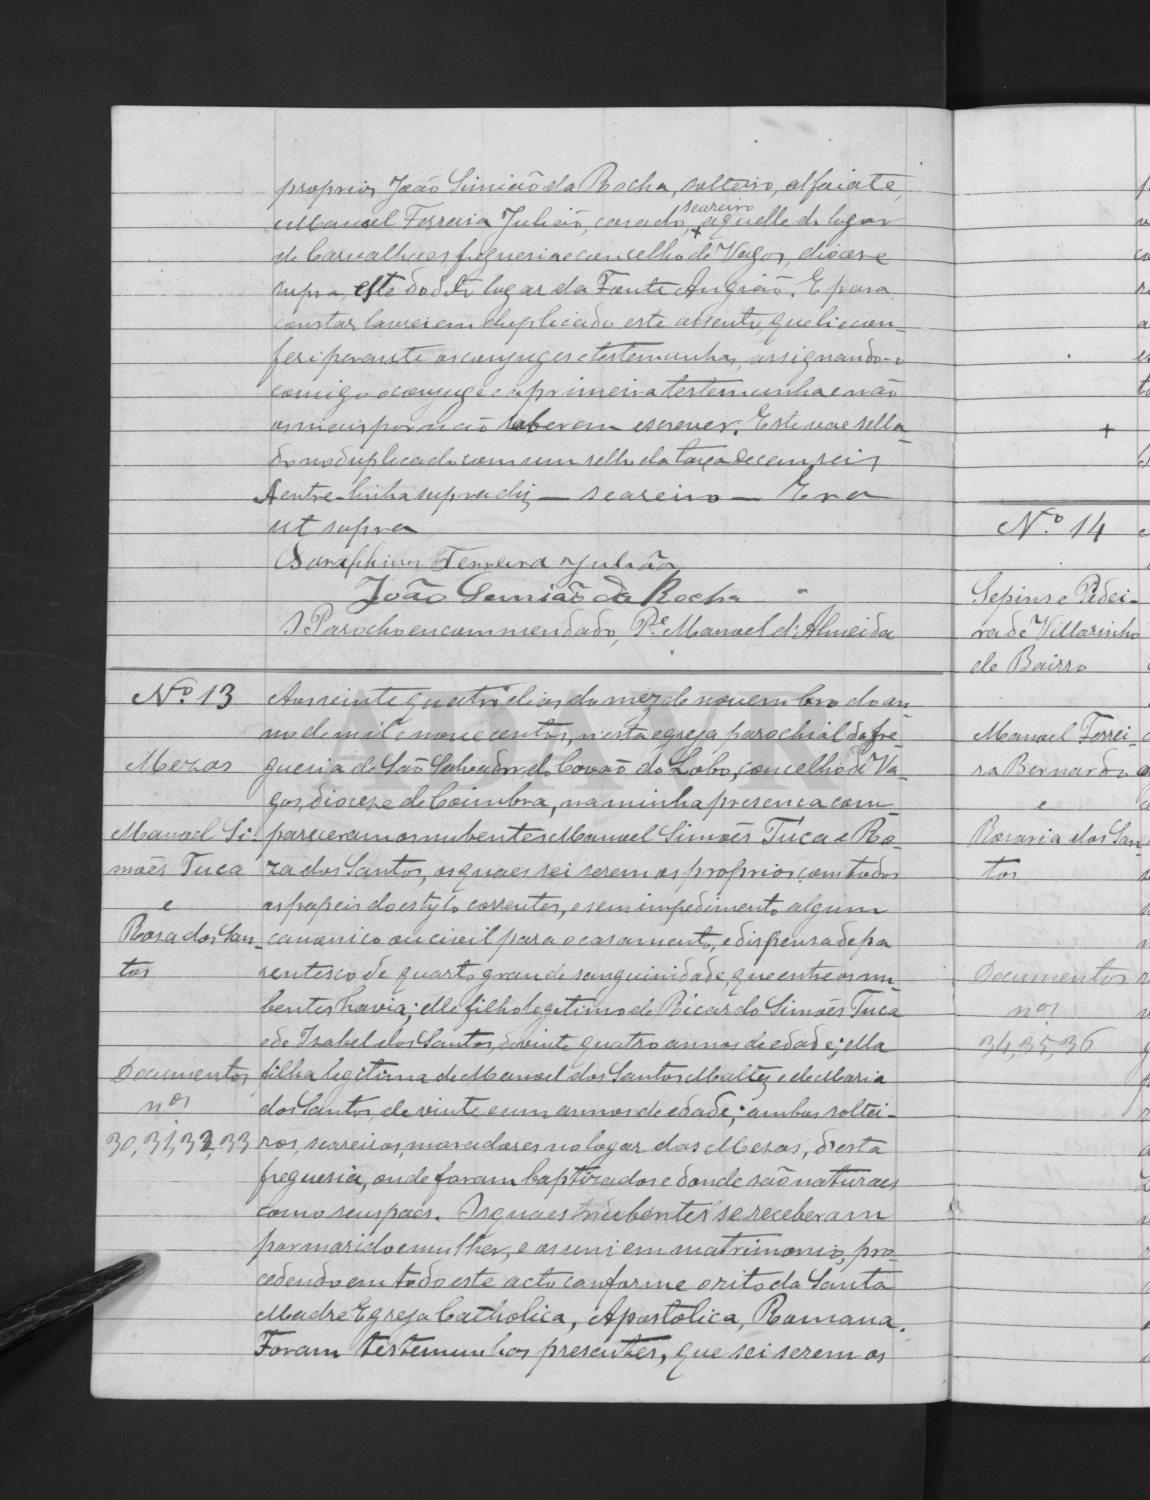 proprios João Simião da Rocha, solteiro, alfaiate,
e Manoel Ferreira Julião, casado, seareiro + aquelle do logar
de Carvalhaes freguesia e concelho de Vagos, diocese
supra, este do dito logar da Fonte Angião. E para
constar lavrei em duplicado este assento, que li e con-
feri perante os conjuges e testemunhas, assignando-o
comigo o conjuge e a primeira testemunha e não
os mais por não saberem escrever. Este vae sella-
do no duplicado com um sello da taxa de cem reis
A entre-linha supra diz — seareiro — Era
ut supra
Seraphim Ferreira Julião
João Semião da Rocha
O Parocho encommendado, P.e Manoel d'Almeida
N.o 13
Mezas
Manoel Si-
mões Tuca
e
Rosa dos San-
tos
Documentos
nos
30, 31, 32, 33
Aos vinte quatro dias do mez de novembro do an-
no de mil e novecentos, n'esta egreja parochial da fre-
guesia de São Salvador do Covão do Lobo, concelho de Va-
gos, diocese de Coimbra, na minha presença com-
pareceram os nubentes Manoel Simões Tuca e Ro-
za dos Santos, os quaes sei serem os proprios, com todos
os papeis do estylo correntes, e sem impedimento algum
canonico ou civil para o casamento, e dispensa de pa
rentesco de quarto grau de sanguinidade, que entre os nu-
bentes havia; elle filho legitimo de Ricardo Simões Tuca
e de Isabel dos Santos, de vinte quatro annos de edade; ella
filha legitima de Manoel dos Santos Maltez e de Maria
dos Santos, de vinte e um annos de edade; ambos soltei-
ros, seareiros, moradores no logar das Mezas, d'esta
freguesia, onde foram baptizados e donde são naturaes
como seus paes. Os quaes nubentes se receberam
por marido e mulher, e os uni em matrimonio, pro-
cedendo em todo este acto conforme o rito da Santa
Madre Egreja Catholica, Apostolica, Romana.
Foram testemunhas presentes, que sei serem os
N.o 14
Sepins e Pedei-
ra de Villarinho
de Bairro
Manoel Ferrei-
ra Bernardo
e
Rosaria dos San-
tos
Documentos
nos
34, 35, 36